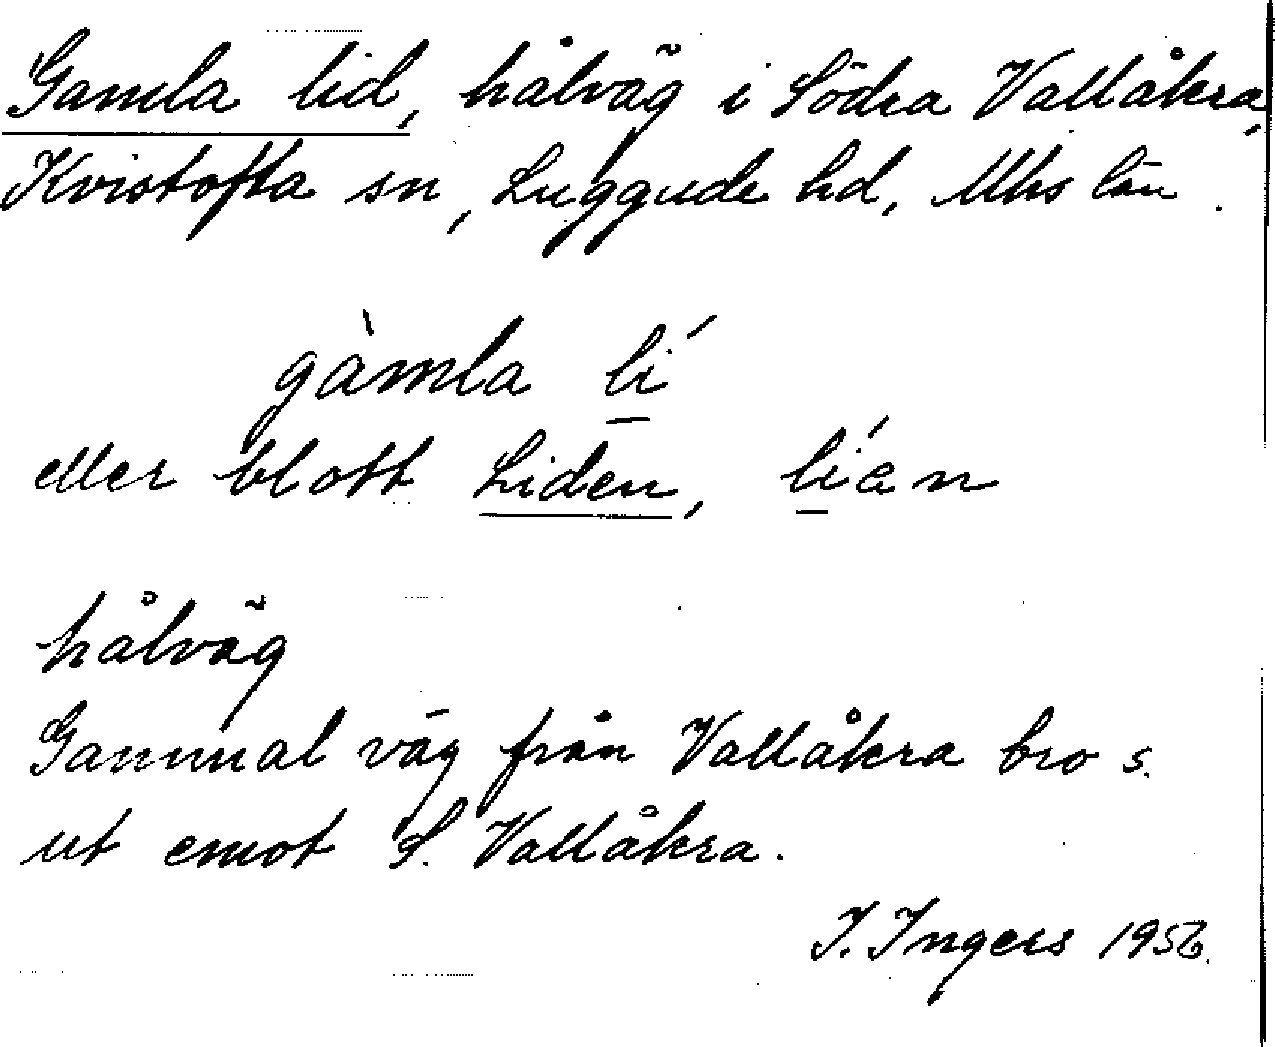 Gamla lid, hålväg i Södra Vallåkra,
Kvistofta sn, Luggude hd, Mhs län.
gàmla lí
eller blott Liden, líən
hålväg
Gammal väg från Vallåkra bro s.
ut emot S. Vallåkra.
I. Ingers 1956.